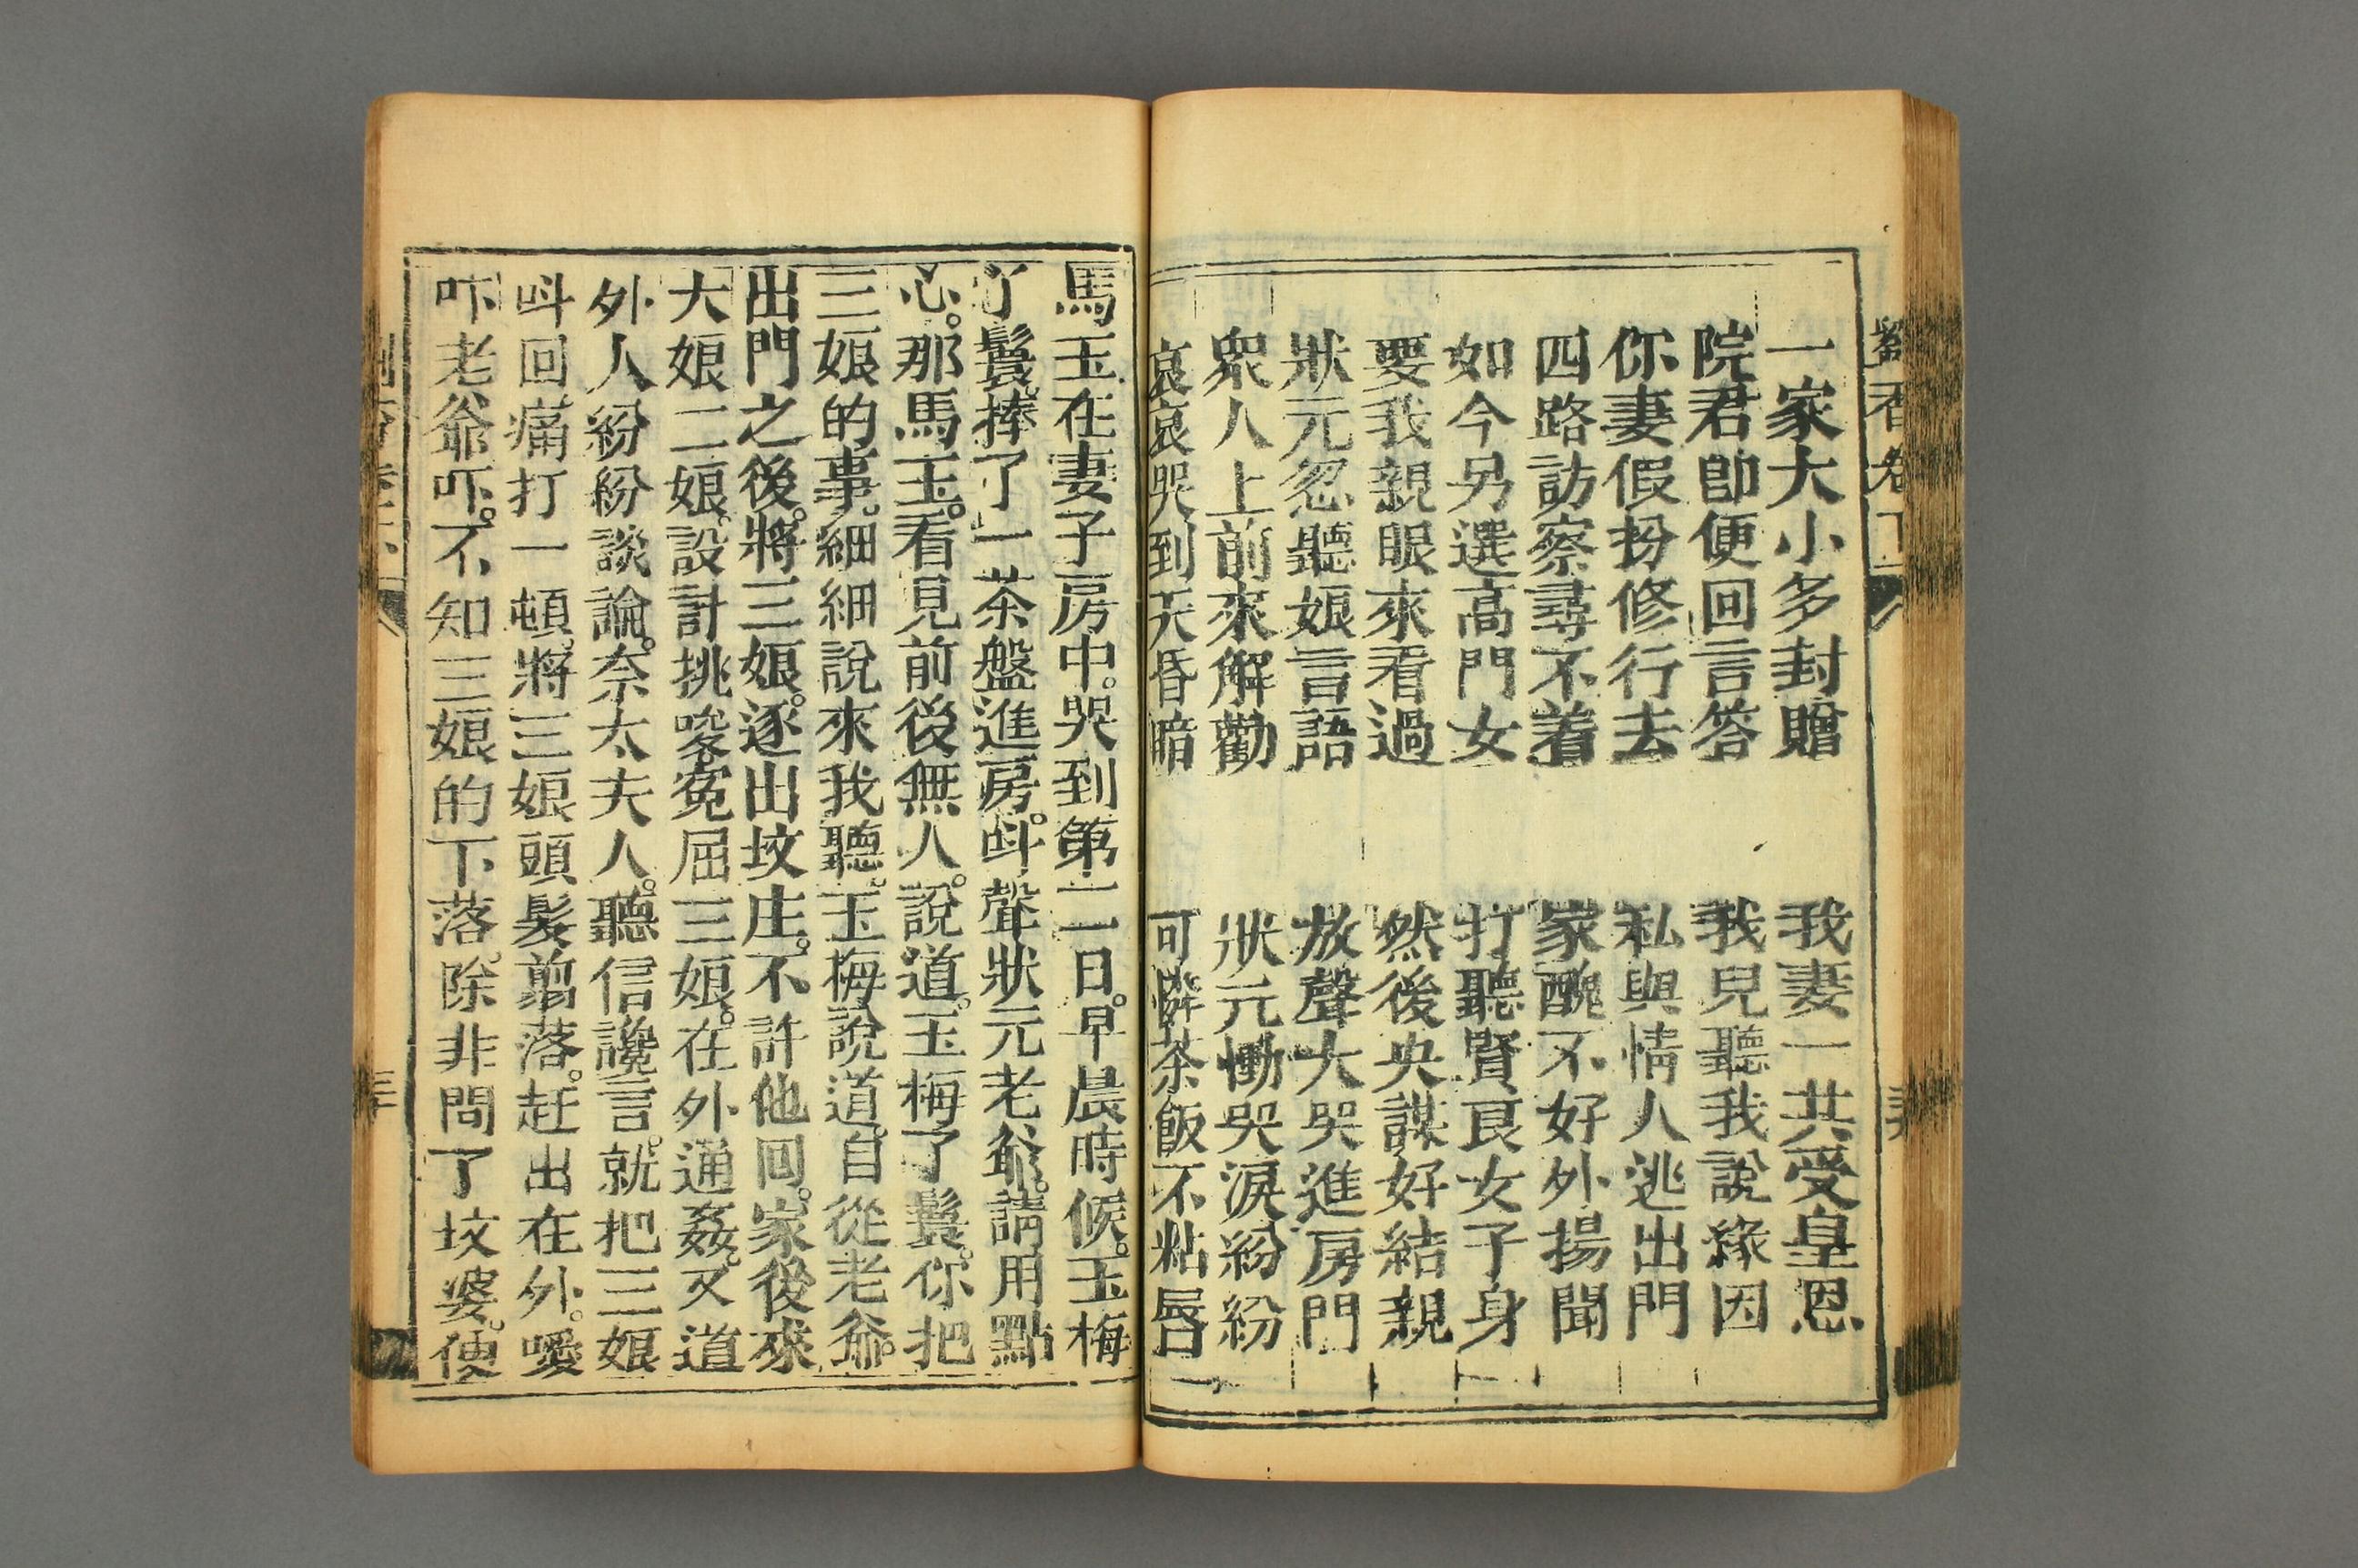 劉香卷下
一家大小多封贈　我妻一共受皇恩
院君卽便回言答　我兒聽我說緣因
你妻假扮修行去　私與情人逃出門
四路訪察尋不着　家醜不好外揚聞
如今另選高門女　打聽賢良女子身
要我親眼來看過　然後央謀好結親
狀元忽聽娘言語　放聲大哭進房門
眾人上前來解勸　狀元慟哭淚紛紛
哀哀哭到天昏暗　可憐茶飯不粘唇
馬玉在妻子房中。哭到第二日。早晨時候。玉梅
丫鬟。捧了一茶盤進房。呌聲狀元老爺。請用點
心。那馬玉。看見前後無人。說道。玉梅丫鬟。你把
三娘的事。細細說來我聽。玉梅說道。自從老爺。
出門之後。將三娘。逐出坟庄。不許他回。家後來
大娘二娘。設計挑唆寃屈三娘。在外通姦。又道
外人紛紛談論。奈太夫人。聽信讒言。就把三娘
呌回痛打一頓。將三娘頭髮剪落。赶出在外。噯
吓老爺吓。不知三娘的下落。除非問了坟婆。便